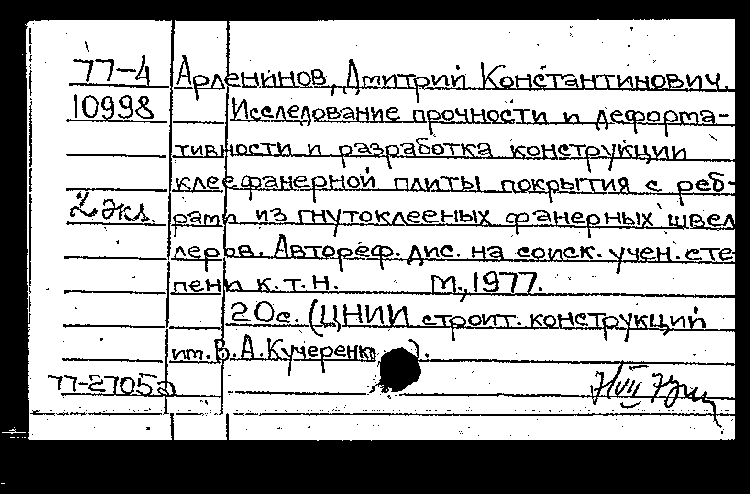 77-4 Арленинов, Дмитрий Константинович.
10998 Исследование прочности и деформа-
тивности и разработка конструкции
клеефанерной плиты покрытия с реб-
2 экз. рами из гнутоклееных фанерных швел
леров. Автореф. дис. на соиск. учен. сте
пени к.т.н. М., 1977.
20с. (ЦНИИ строит. конструкций
им. В.А. Кучеренко).
77-27052